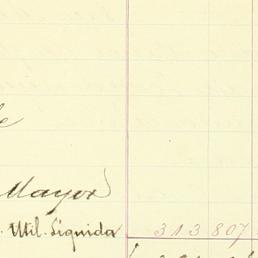 Mayor
Util. Liquida 313 807